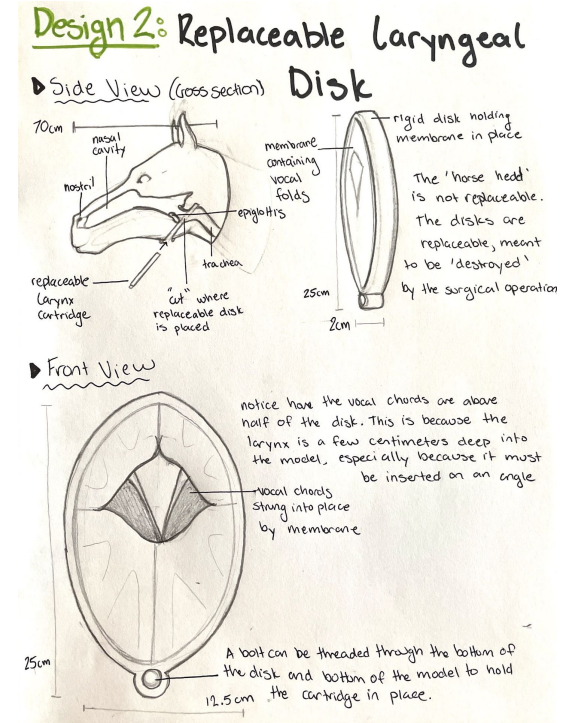 Design 2: Replaceable Laryngeal
Disk
Side View (Cross section)
70cm
nasal
cavity
nostril
epiglottis
trachea
replaceable
larynx
cartridge
"cut" where
replaceable disk
is placed
membrane
containing
vocal
folds
rigid disk holding
membrane in place
The 'horse head'
is not replaceable.
The disks are
replaceable, meant
to be 'destroyed'
by the surgical operation
25cm
2cm
Front View
notice how the vocal chords are above
half of the disk. This is because the
larynx is a few centimeters deep into
the model, especially because it must
be inserted on an angle
vocal chords
strung into place
by membrane
25cm
A bolt can be threaded through the bottom of
the disk and bottom of the model to hold
the cartridge in place.
12.5cm